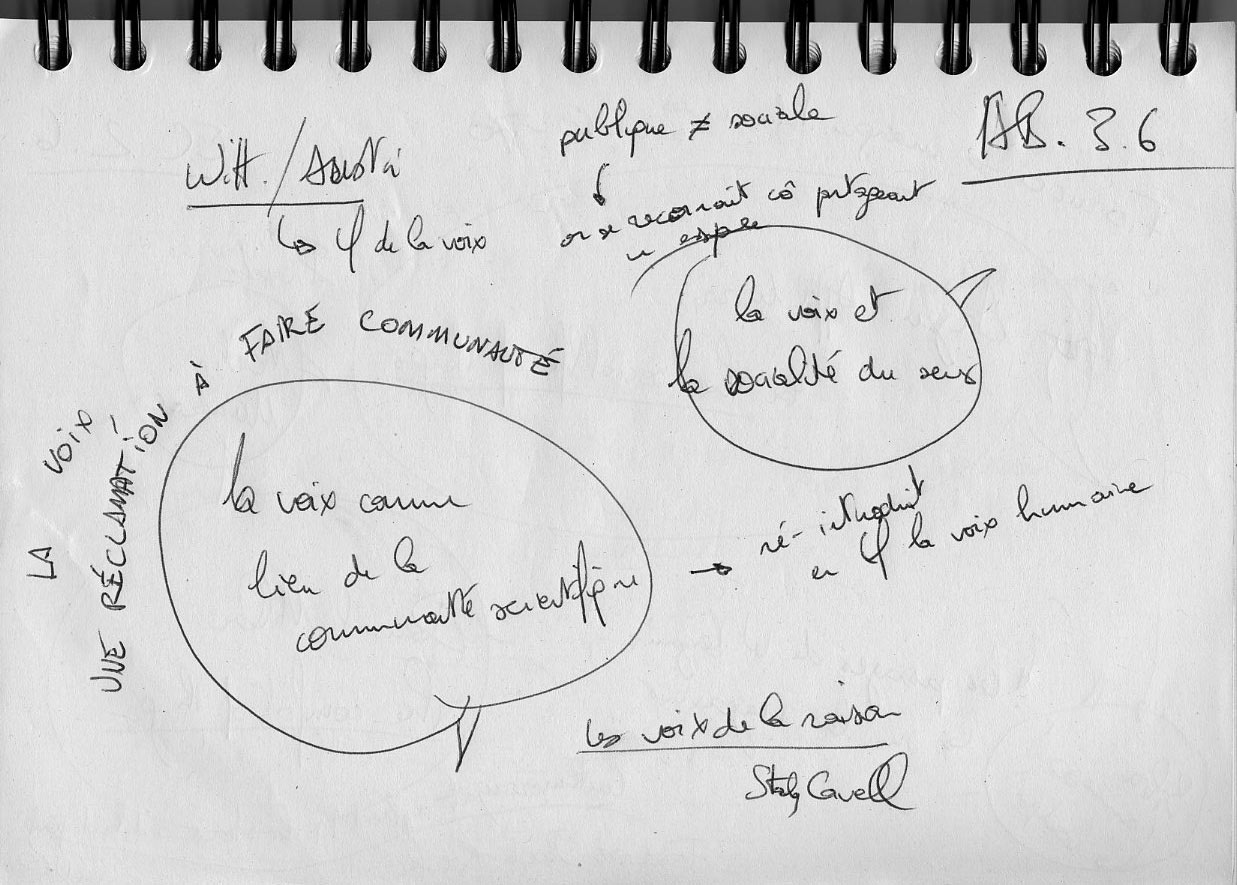 Witt. / Austin
↳ φ de la voix
publique ≠ sociale
on se reconnait cô partageant
un espace
AB. 3.6
la voix et
la socialité du sens
LA VOIX
UNE RÉCLAMATION À FAIRE COMMUNAUTÉ
la voix comme
lieu de la
communauté scientifique
→ ré-introduit
en φ la voix humaine
les voix de la raison
Stanley Cavell